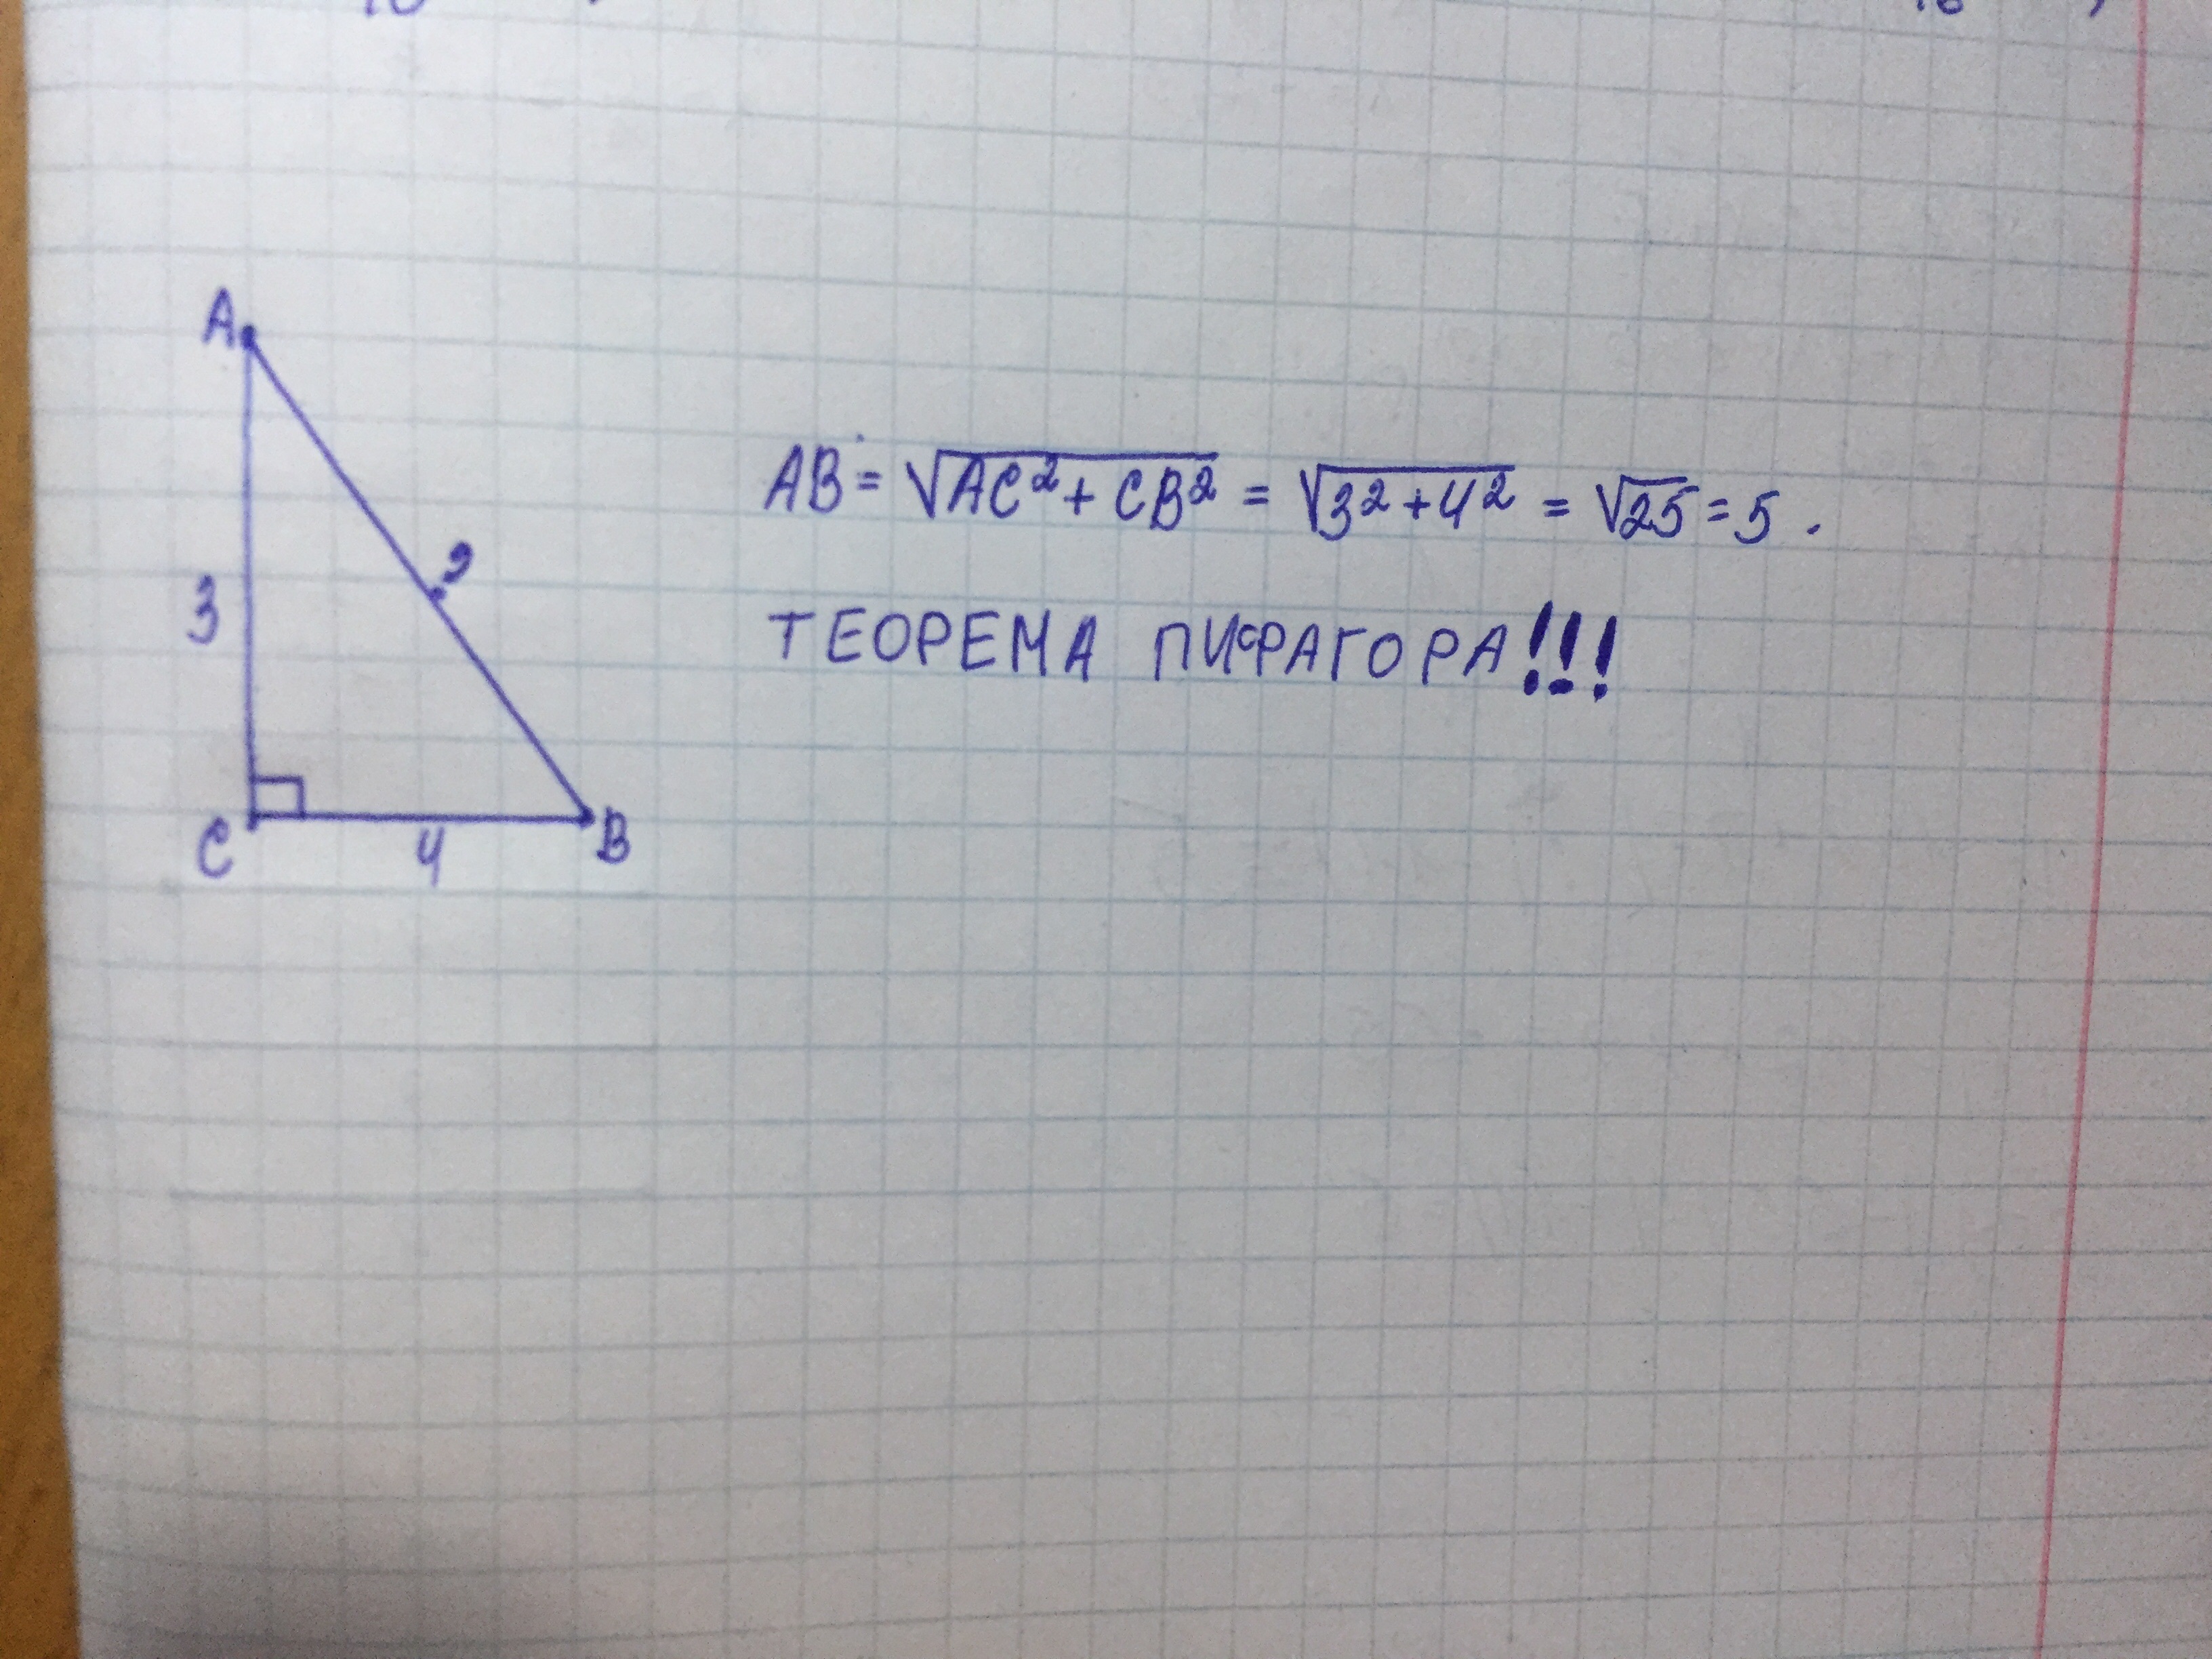 A
?
3
C
4
B
AB = √AC² + CB² = √3² + 4² = √25 = 5.
ТЕОРЕМА ПИФАГОРА!!!